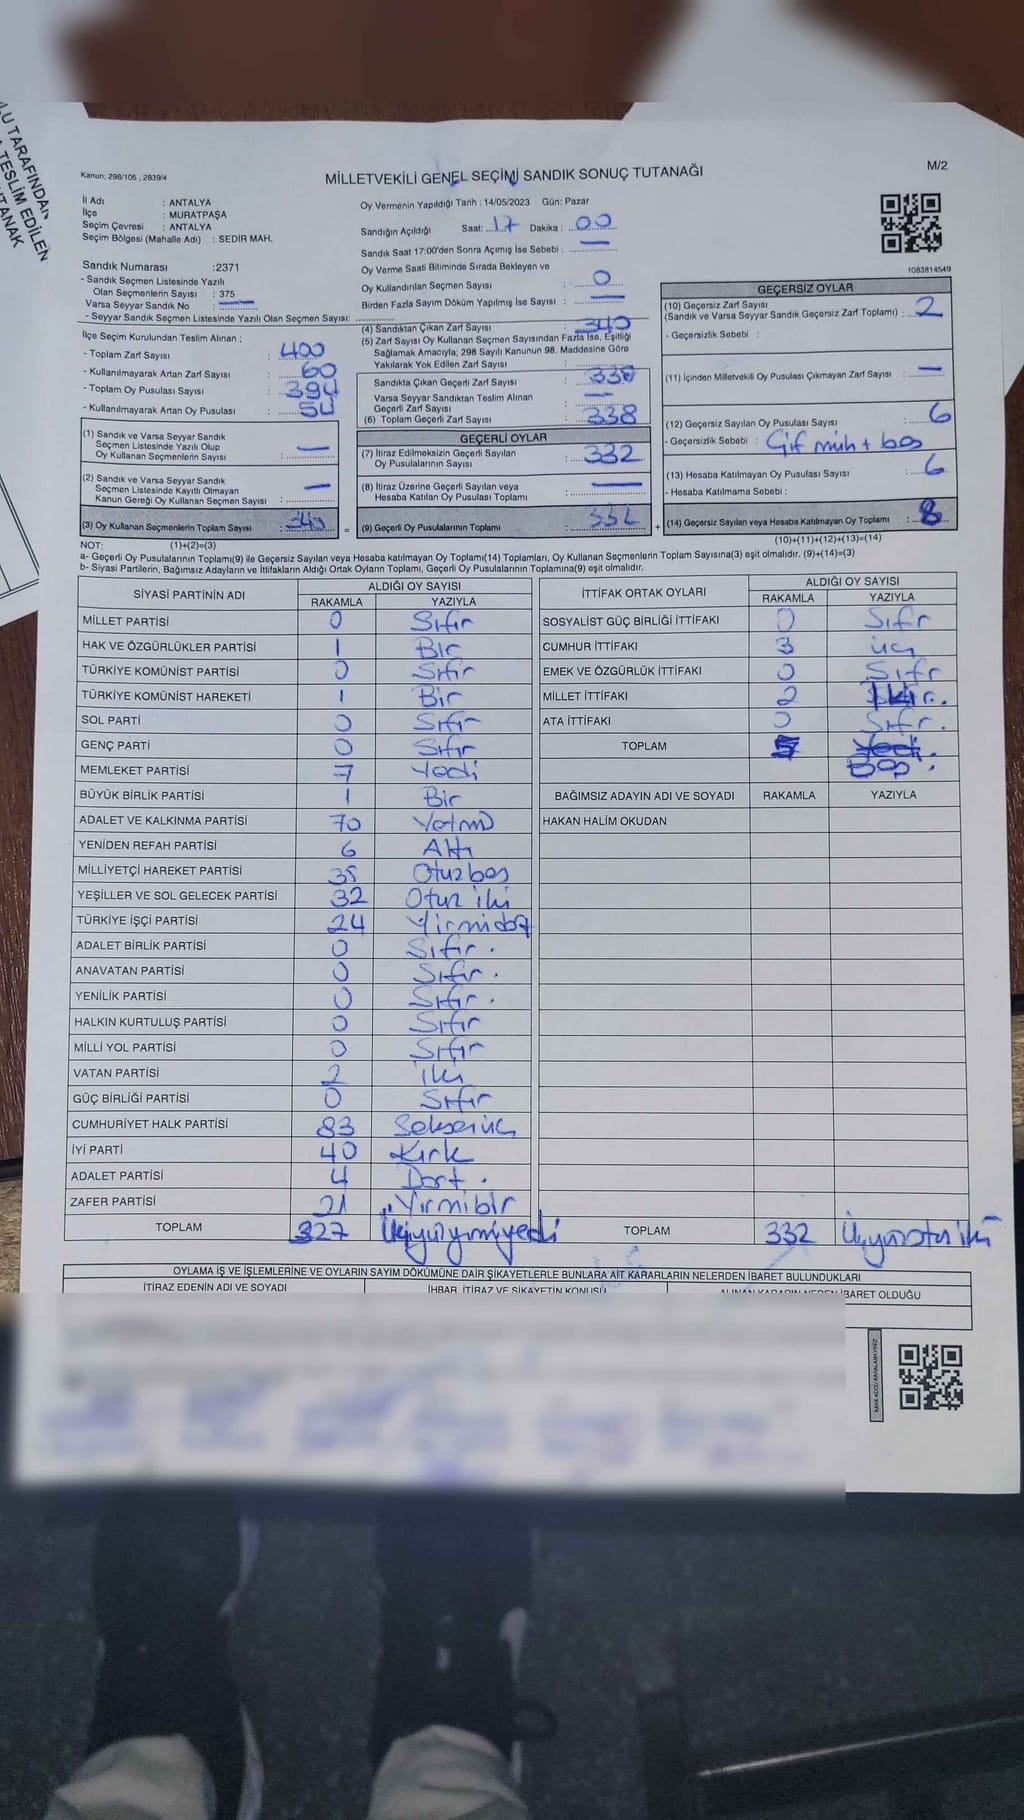 LU TARAFINDAN
A TESLİM EDİLEN
UTANAK
Kanun; 298/105 , 2839/4
MİLLETVEKİLİ GENEL SEÇİMİ SANDIK SONUÇ TUTANAĞI
M/2
İl Adı : ANTALYA
İlçe : MURATPAŞA
Seçim Çevresi : ANTALYA
Seçim Bölgesi (Mahalle Adı) : SEDİR MAH.
Sandık Numarası :2371
- Sandık Seçmen Listesinde Yazılı
Olan Seçmenlerin Sayısı : 375
Varsa Seyyar Sandık No : —
- Seyyar Sandık Seçmen Listesinde Yazılı Olan Seçmen Sayısı:
Oy Vermenin Yapıldığı Tarih : 14/05/2023 Gün: Pazar
Sandığın Açıldığı Saat: 17 Dakika : 00
Sandık Saat 17:00'den Sonra Açımış İse Sebebi : —
Oy Verme Saati Bitiminde Sırada Bekleyen ve
Oy Kullandırılan Seçmen Sayısı : 0
Birden Fazla Sayım Döküm Yapılmış İse Sayısı : —
1083814549
İlçe Seçim Kurulundan Teslim Alınan ;
- Toplam Zarf Sayısı : 400
- Kullanılmayarak Artan Zarf Sayısı : 60
- Toplam Oy Pusulası Sayısı : 394
- Kullanılmayarak Artan Oy Pusulası : 54
(1) Sandık ve Varsa Seyyar Sandık
Seçmen Listesinde Yazılı Olup
Oy Kullanan Seçmenlerin Sayısı : —
(2) Sandık ve Varsa Seyyar Sandık
Seçmen Listesinde Kayıtlı Olmayan
Kanun Gereği Oy Kullanan Seçmen Sayısı : —
(3) Oy Kullanan Seçmenlerin Toplam Sayısı : 340
(4) Sandıktan Çıkan Zarf Sayısı : 340
(5) Zarf Sayısı Oy Kullanan Seçmen Sayısından Fazla İse, Eşitliği
Sağlamak Amacıyla; 298 Sayılı Kanunun 98. Maddesine Göre
Yakılarak Yok Edilen Zarf Sayısı :
Sandıkta Çıkan Geçerli Zarf Sayısı : 338
Varsa Seyyar Sandıktan Teslim Alınan
Geçerli Zarf Sayısı : —
(6) Toplam Geçerli Zarf Sayısı : 338
GEÇERLİ OYLAR
(7) İtiraz Edilmeksizin Geçerli Sayılan
Oy Pusulalarının Sayısı : 332
(8) İtiraz Üzerine Geçerli Sayılan veya
Hesaba Katılan Oy Pusulası Toplamı : —
= (9) Geçerli Oy Pusulalarının Toplamı : 332
GEÇERSİZ OYLAR
(10) Geçersiz Zarf Sayısı
(Sandık ve Varsa Seyyar Sandık Geçersiz Zarf Toplamı) : 2
- Geçersizlik Sebebi :
(11) İçinden Milletvekili Oy Pusulası Çıkmayan Zarf Sayısı : —
(12) Geçersiz Sayılan Oy Pusulası Sayısı : 6
- Geçersizlik Sebebi : Çif müh + boş
(13) Hesaba Katılmayan Oy Pusulası Sayısı : 6
- Hesaba Katılmama Sebebi :
+ (14) Geçersiz Sayılan veya Hesaba Katılmayan Oy Toplamı : 8
NOT: (1)+(2)=(3)
(10)+(11)+(12)+(13)=(14)
a- Geçerli Oy Pusulalarının Toplamı(9) ile Geçersiz Sayılan veya Hesaba katılmayan Oy Toplamı(14) Toplamları, Oy Kullanan Seçmenlerin Toplam Sayısına(3) eşit olmalıdır. (9)+(14)=(3)
b- Siyasi Partilerin, Bağımsız Adayların ve İttifakların Aldığı Ortak Oyların Toplamı, Geçerli Oy Pusulalarının Toplamına(9) eşit olmalıdır.
SİYASİ PARTİNİN ADI ALDIĞI OY SAYISI
RAKAMLA YAZIYLA
MİLLET PARTİSİ 0 Sıfır
HAK VE ÖZGÜRLÜKLER PARTİSİ 1 Bir
TÜRKİYE KOMÜNİST PARTİSİ 0 Sıfır
TÜRKİYE KOMÜNİST HAREKETİ 1 Bir
SOL PARTİ 0 Sıfır
GENÇ PARTİ 0 Sıfır
MEMLEKET PARTİSİ 7 Yedi
BÜYÜK BİRLİK PARTİSİ 1 Bir
ADALET VE KALKINMA PARTİSİ 70 Yetmiş
YENİDEN REFAH PARTİSİ 6 Altı
MİLLİYETÇİ HAREKET PARTİSİ 35 Otuzbeş
YEŞİLLER VE SOL GELECEK PARTİSİ 32 Otuz iki
TÜRKİYE İŞÇİ PARTİSİ 24 Yirmidört
ADALET BİRLİK PARTİSİ 0 Sıfır.
ANAVATAN PARTİSİ 0 Sıfır.
YENİLİK PARTİSİ 0 Sıfır.
HALKIN KURTULUŞ PARTİSİ 0 Sıfır
MİLLİ YOL PARTİSİ 0 Sıfır
VATAN PARTİSİ 2 iki
GÜÇ BİRLİĞİ PARTİSİ 0 Sıfır
CUMHURİYET HALK PARTİSİ 83 Seksenüç
İYİ PARTİ 40 Kırk
ADALET PARTİSİ 4 Dört.
ZAFER PARTİSİ 21 Yirmibir
TOPLAM 327 Üçyüzyirmiyedi
İTTİFAK ORTAK OYLARI ALDIĞI OY SAYISI
RAKAMLA YAZIYLA
SOSYALİST GÜÇ BİRLİĞİ İTTİFAKI 0 Sıfır
CUMHUR İTTİFAKI 3 üç
EMEK VE ÖZGÜRLÜK İTTİFAKI 0 Sıfır
MİLLET İTTİFAKI 2 İki.
ATA İTTİFAKI 0 Sıfır.
TOPLAM 5 Yedi.
Beş.
BAĞIMSIZ ADAYIN ADI VE SOYADI RAKAMLA YAZIYLA
HAKAN HALİM OKUDAN
TOPLAM 332 Üçyüzotuz iki
OYLAMA İŞ VE İŞLEMLERİNE VE OYLARIN SAYIM DÖKÜMÜNE DAİR ŞİKAYETLERLE BUNLARA AİT KARARLARIN NELERDEN İBARET BULUNDUKLARI
İTİRAZ EDENİN ADI VE SOYADI İHBAR, İTİRAZ VE ŞİKAYETİN KONUSU ALINAN KARARIN NEDEN İBARET OLDUĞU